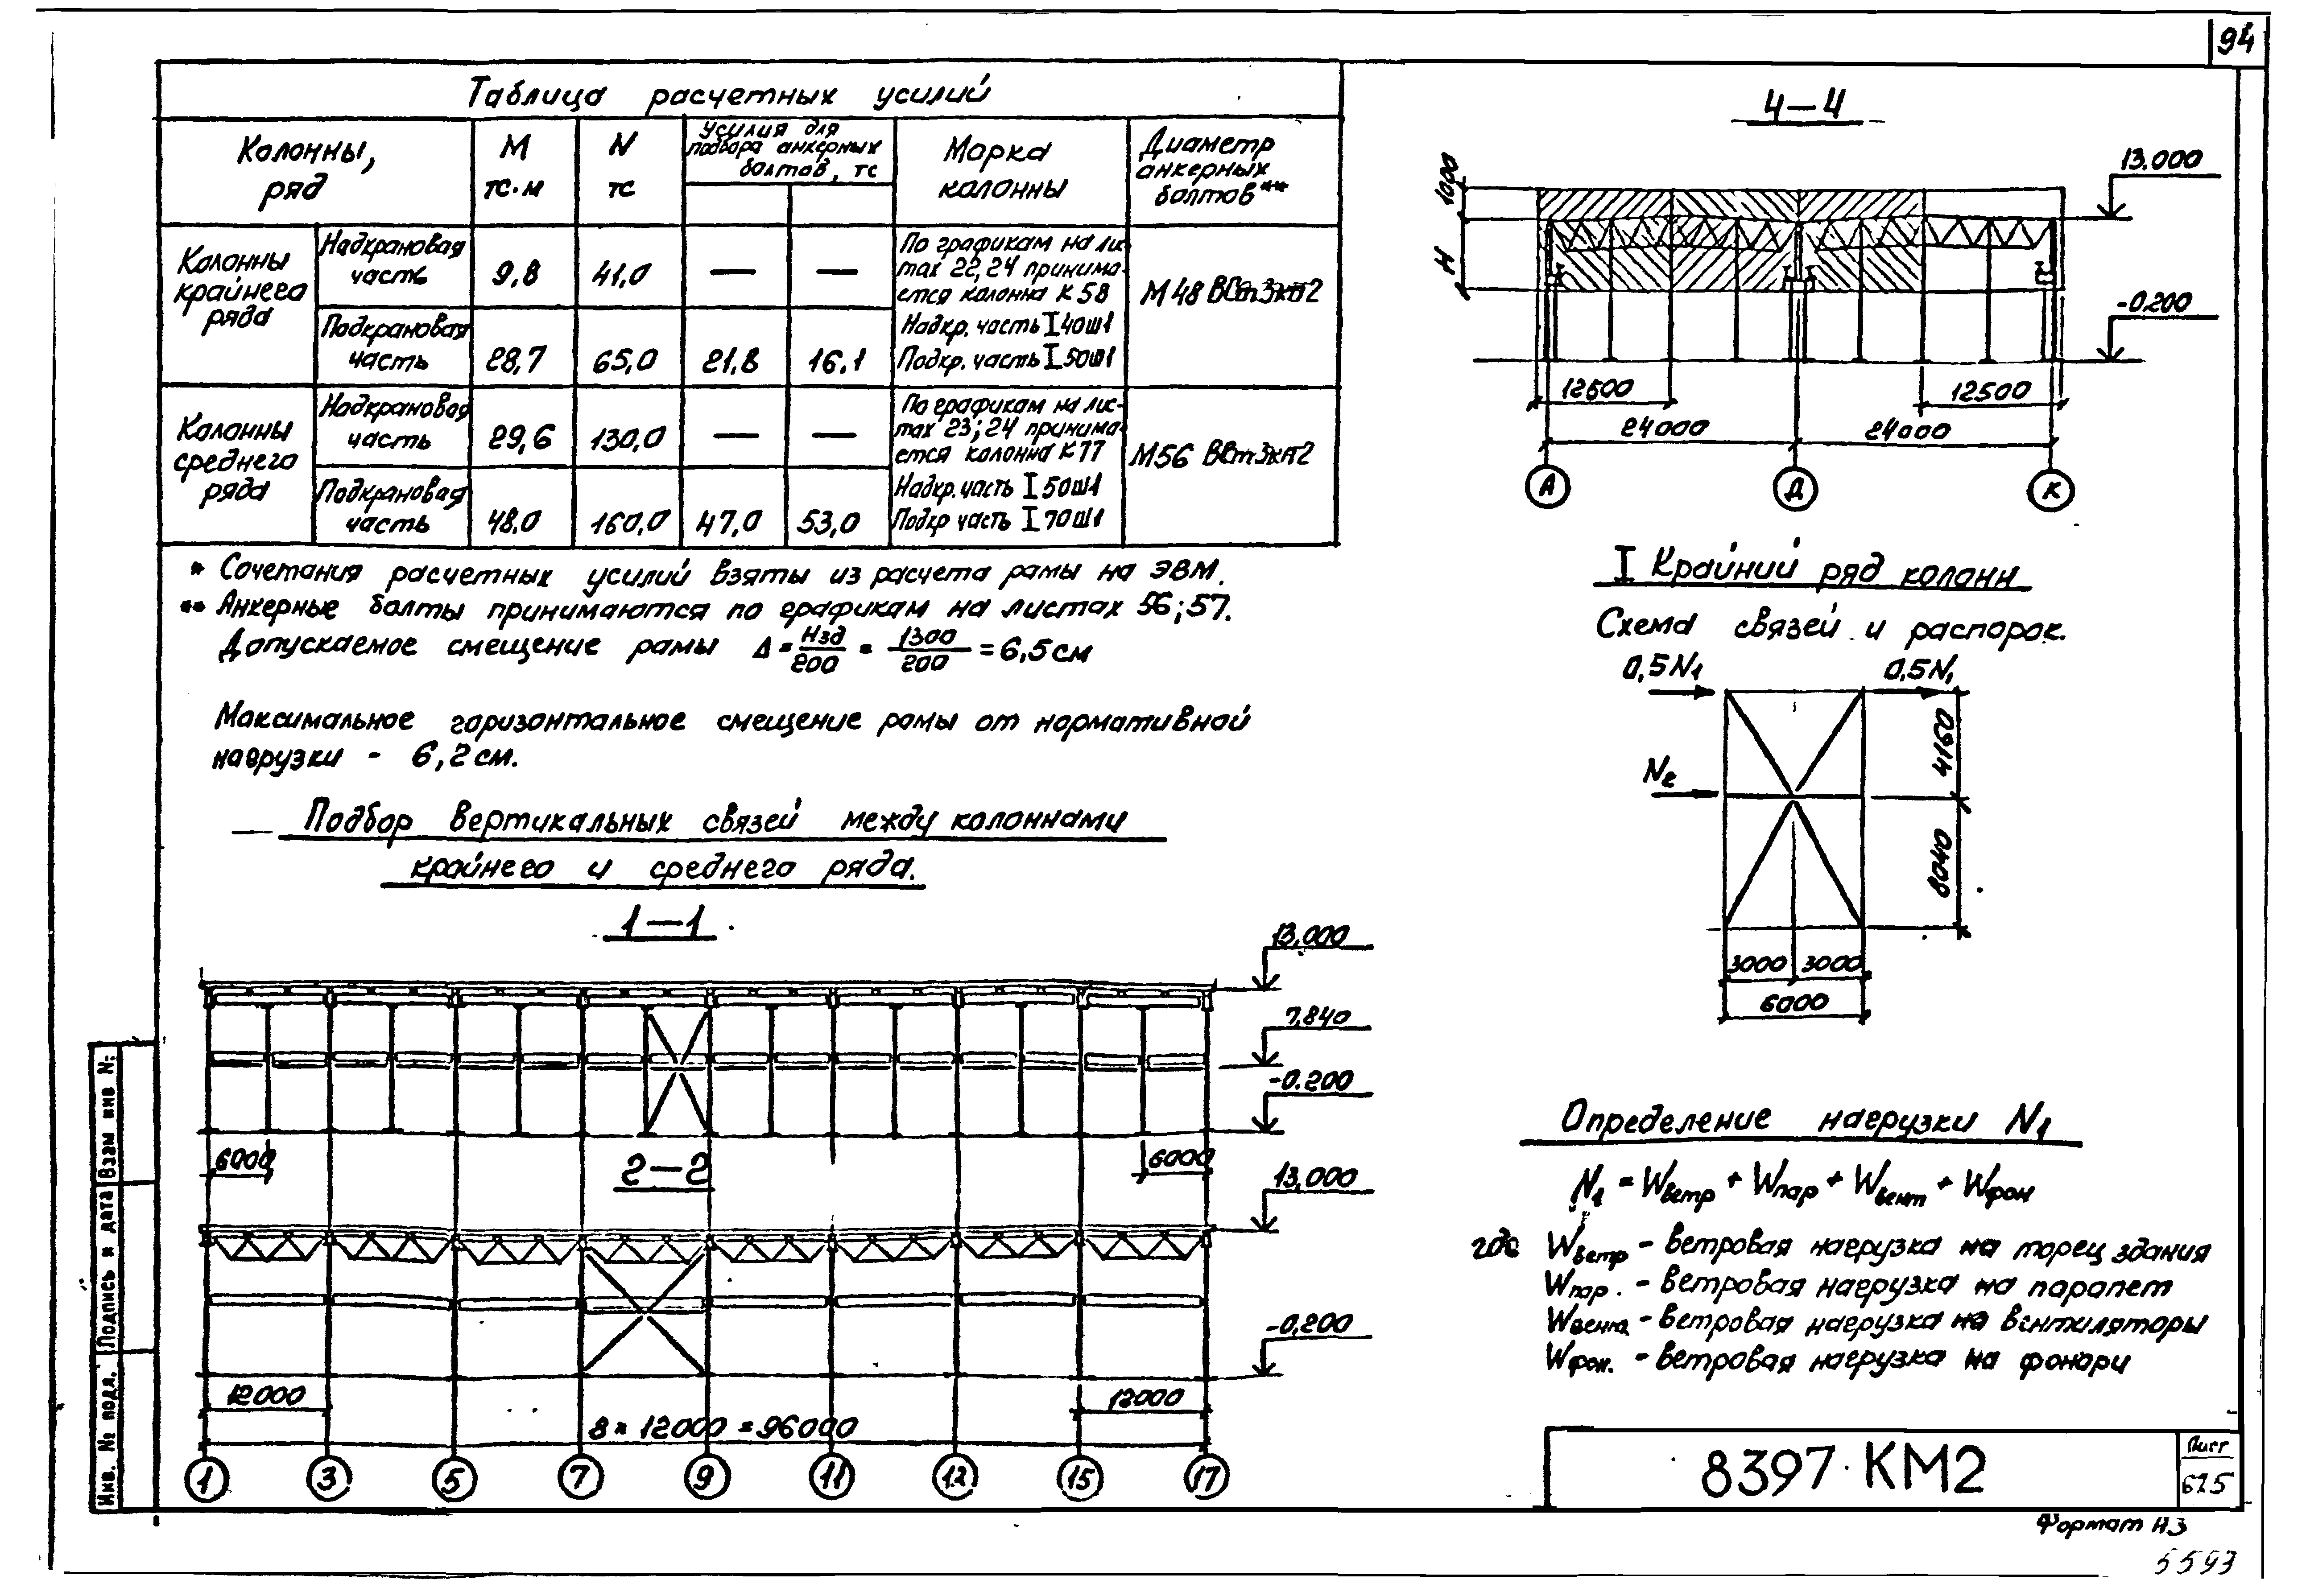 94
Таблица расчетных усилий
Колонны, ряд
М тс·м
N тс
Усилия для подбора анкерных болтов, тс
Марка колонны
Диаметр анкерных болтов**
Колонны крайнего ряда
Надкрановая часть
9,8
41,0
—
—
По графикам на листах 22, 24 принимается колонна К 58
М 48 ВСт3кп2
Подкрановая часть
28,7
65,0
21,8
16,1
Надкр. часть I 40ш1
Подкр. часть I 50ш1
Колонны среднего ряда
Надкрановая часть
29,6
130,0
—
—
По графикам на листах 23; 24 принимается колонна К 77
М56 ВСт3кп2
Подкрановая часть
48,0
160,0
47,0
53,0
Надкр. часть I 50ш1
Подкр часть I 70ш1
* Сочетания расчетных усилий взяты из расчета рамы на ЭВМ.
** Анкерные болты принимаются по графикам на листах 56; 57.
Допускаемое смещение рамы Δ = Hзд/200 = 1300/200 = 6,5 см
Максимальное горизонтальное смещение рамы от нормативной
нагрузки - 6,2 см.
Подбор вертикальных связей между колоннами
крайнего и среднего ряда.
1—1
13,000
7,840
-0.200
6000
6000
2—2
13,000
-0,200
12000
12000
8 × 12000 = 96000
1 3 5 7 9 11 12 15 17
4—4
1000
Н
13.000
-0.200
12500
12500
24000
24000
А Д К
I Крайний ряд колонн
Схема связей и распорок.
0,5N1
0,5N1
N2
4160
8040
3000 3000
6000
Определение нагрузки N1
N1 = Wветр + Wпар + Wвент + Wфон
где Wветр - ветровая нагрузка на торец здания
Wпар. - ветровая нагрузка на парапет
Wвент. - ветровая нагрузка на вентиляторы
Wфон. - ветровая нагрузка на фонари
8397 КМ2
Лист
62.5
Формат А3
5593
Инв. № подл.
Подпись и дата
Взам инв N: